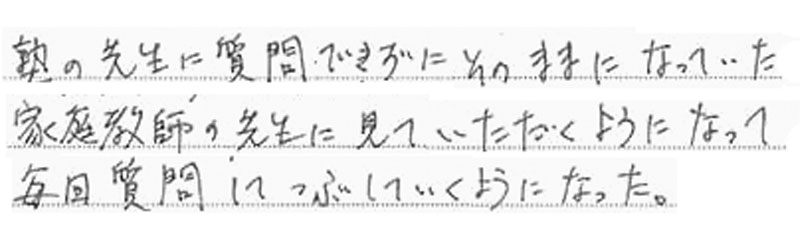 塾の先生に質問できずにそのままになっていた
家庭教師の先生に見ていただくようになって
毎回質問してつぶしていくようになった。